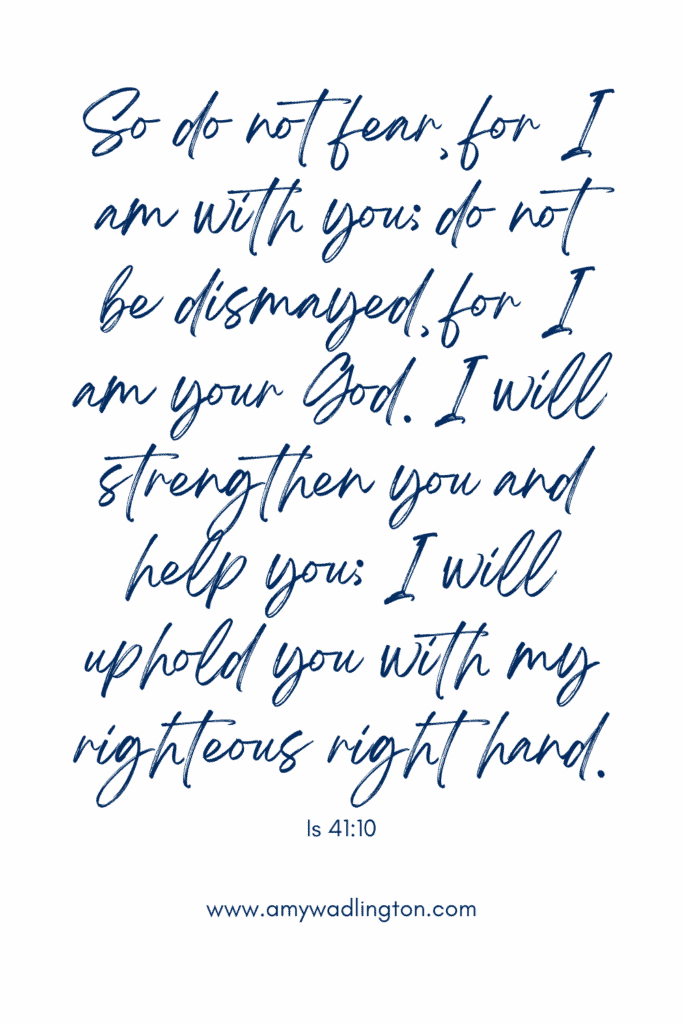 So do not fear, for I
am with you; do not
be dismayed, for I
am your God. I will
strengthen you and
help you; I will
uphold you with my
righteous right hand.
Is 41:10
www.amywadlington.com